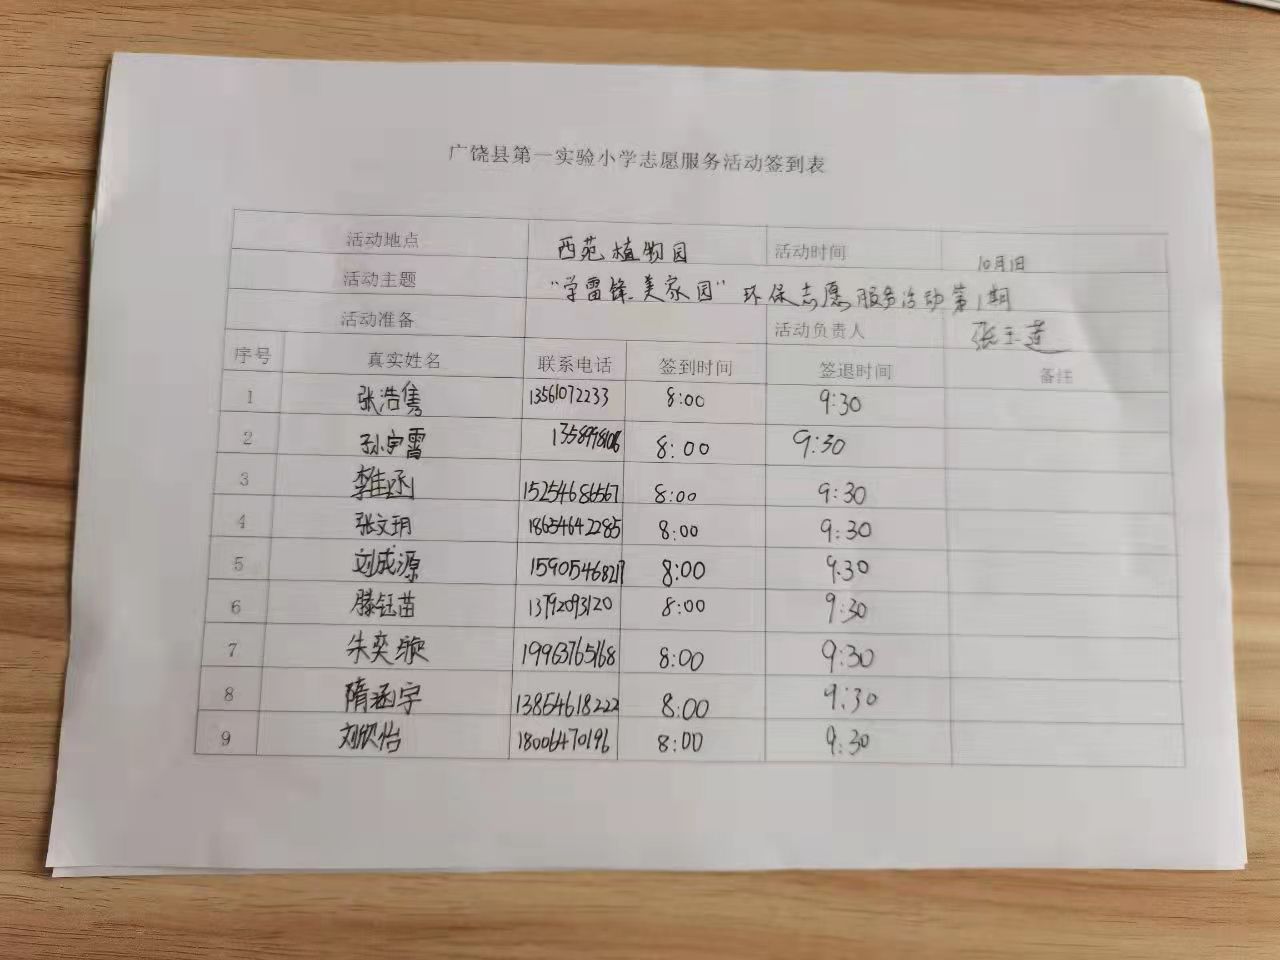 广饶县第一实验小学志愿服务活动签到表
活动地点 西苑植物园 活动时间 10月1日
活动主题 "学雷锋.美家园"环保志愿服务活动第1期
活动准备 活动负责人 张玉莲
序号 真实姓名 联系电话 签到时间 签退时间 备注
1 张浩隽 13561072233 8:00 9:30
2 孙宇霄 8:00 9:30
3 李佳函 15254686567 8:00 9:30
4 张文玥 18654642285 8:00 9:30
5 刘成源 15905468217 8:00 9:30
6 滕钰苗 13792093120 8:00 9:30
7 朱奕璇 19963765168 8:00 9:30
8 隋涵宇 13854618222 8:00 9:30
9 刘欣怡 18006470196 8:00 9:30